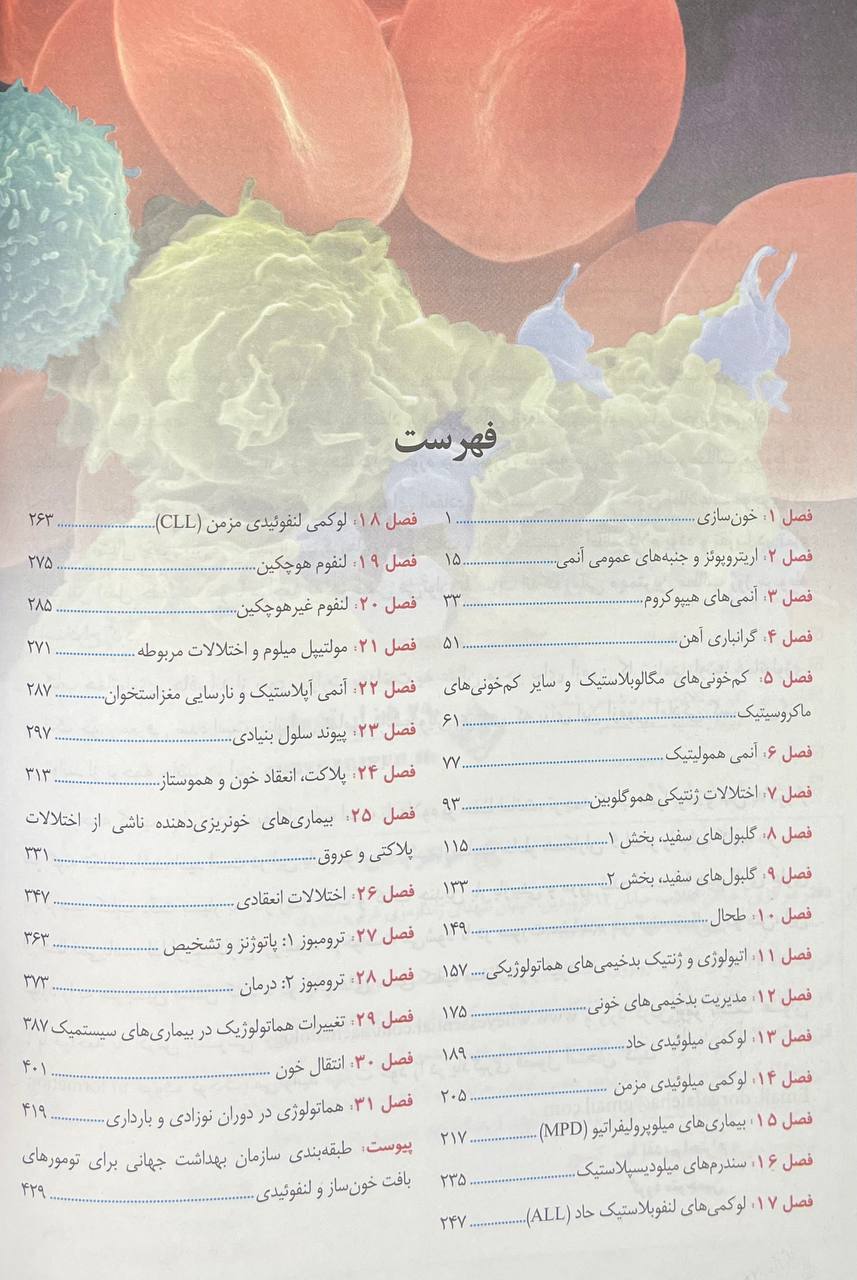 فهرست
فصل ۱: خون‌سازی ........ ۱
فصل ۲: اریتروپوئز و جنبه‌های عمومی آنمی ........ ۱۵
فصل ۳: آنمی‌های هیپوکروم ........ ۳۳
فصل ۴: گرانباری آهن ........ ۵۱
فصل ۵: کم‌خونی‌های مگالوبلاستیک و سایر کم‌خونی‌های
ماکروسیتیک ........ ۶۱
فصل ۶: آنمی همولیتیک ........ ۷۷
فصل ۷: اختلالات ژنتیکی هموگلوبین ........ ۹۳
فصل ۸: گلبول‌های سفید، بخش ۱ ........ ۱۱۵
فصل ۹: گلبول‌های سفید، بخش ۲ ........ ۱۳۳
فصل ۱۰: طحال ........ ۱۴۹
فصل ۱۱: اتیولوژی و ژنتیک بدخیمی‌های هماتولوژیکی .... ۱۵۷
فصل ۱۲: مدیریت بدخیمی‌های خونی ........ ۱۷۵
فصل ۱۳: لوکمی میلوئیدی حاد ........ ۱۸۹
فصل ۱۴: لوکمی میلوئیدی مزمن ........ ۲۰۵
فصل ۱۵: بیماری‌های میلوپرولیفراتیو (MPD) ........ ۲۱۷
فصل ۱۶: سندرم‌های میلودیسپلاستیک ........ ۲۳۵
فصل ۱۷: لوکمی‌های لنفوبلاستیک حاد (ALL) ........ ۲۴۷
فصل ۱۸: لوکمی لنفوئیدی مزمن (CLL) ........ ۲۶۳
فصل ۱۹: لنفوم هوچکین ........ ۲۷۵
فصل ۲۰: لنفوم غیرهوچکین ........ ۲۸۵
فصل ۲۱: مولتیپل میلوم و اختلالات مربوطه ........ ۲۷۱
فصل ۲۲: آنمی آپلاستیک و نارسایی مغزاستخوان ........ ۲۸۷
فصل ۲۳: پیوند سلول بنیادی ........ ۲۹۷
فصل ۲۴: پلاکت، انعقاد خون و هموستاز ........ ۳۱۳
فصل ۲۵: بیماری‌های خونریزی‌دهنده ناشی از اختلالات
پلاکتی و عروق ........ ۳۳۱
فصل ۲۶: اختلالات انعقادی ........ ۳۴۷
فصل ۲۷: ترومبوز ۱: پاتوژنز و تشخیص ........ ۳۶۳
فصل ۲۸: ترومبوز ۲: درمان ........ ۳۷۳
فصل ۲۹: تغییرات هماتولوژیک در بیماری‌های سیستمیک ۳۸۷
فصل ۳۰: انتقال خون ........ ۴۰۱
فصل ۳۱: هماتولوژی در دوران نوزادی و بارداری ........ ۴۱۹
پیوست: طبقه‌بندی سازمان بهداشت جهانی برای تومورهای
بافت خون‌ساز و لنفوئیدی ........ ۴۲۹